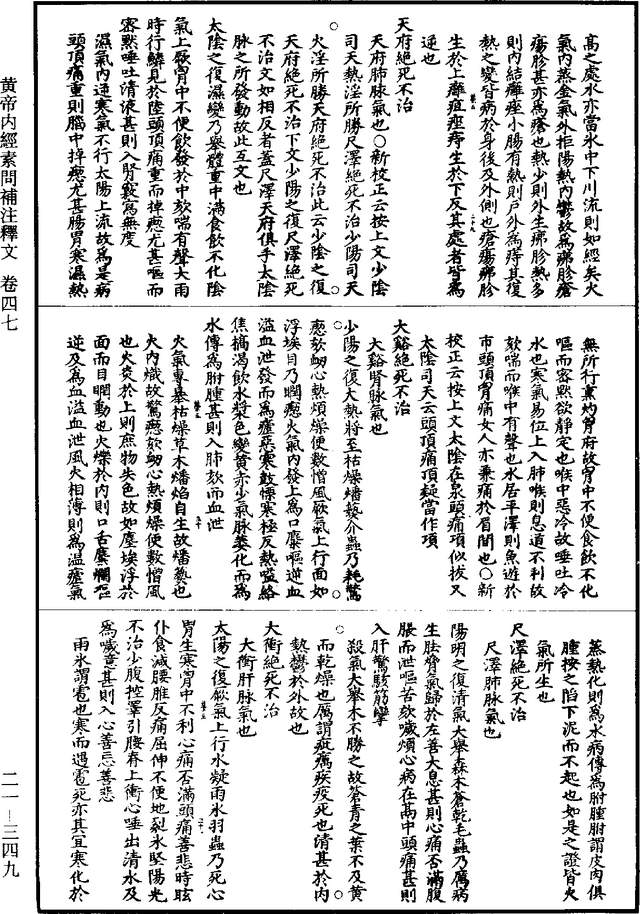 高之處水亦當氷中下川流則如經矣火
氣内蒸金氣外拒陽熱内鬱故為疿胗瘡
瘍胗甚亦為瘡也熱少則外生疿胗熱多
則内結癰痤小腸有熱則戶外為痔其復
熱之變皆病於身後及外側也瘡瘍疿胗
生於上癰疽痤痔生於下反其處者皆為
逆也
天府絕死不治
天府肺脉氣也○新校正云按上文少陰
司天熱淫所勝尺澤絕死不治少陽司天
火淫所勝天府絕死不治此云少陰之復
天府絕死不治下文少陽之復尺澤絕死
不治文如相反者蓋尺澤天府俱手太陰
脉之所發動故此互文也
太陰之復濕變乃舉體重中滿食飲不化陰
氣上厥胷中不便飲發於中欬喘有聲大雨
時行鱗見於陸頭頂痛重而掉瘛尤甚嘔而
密默唾吐清液甚則入腎竅寫無度
濕氣内逆寒氣不行太陽上流故為是病
頭頂痛重則腦中掉瘛尤甚腸胃寒濕熱
無所行熏灼胷府故胷中不便食飲不化
嘔而密默欲靜定也喉中惡冷故唾吐冷
水也寒氣易位上入肺喉則息道不利故
欬喘而喉中有聲也水居平澤則魚遊於
市頭頂胷痛女人亦兼痛於眉間也○新
校正云按上文太陰在泉頭痛項似拔又
太陰司天云頭頂痛頂疑當作項
太谿絕死不治
太谿腎脉氣也
少陽之復大熱將至枯燥燔爇介蟲乃耗驚
瘛欬衂心熱煩燥便數憎風厥氣上行面如
浮埃目乃瞤瘛火氣内發上為口麋嘔逆血
溢血泄發而為瘧惡寒鼓慄寒極反熱嗌絡
焦槁渴飲水漿色變黃赤少氣脉萎化而為
水傳為胕腫甚則入肺欬而血泄
火氣專暴枯燥草木燔焰自生故燔爇也
火内熾故驚瘛欬衂心熱煩燥便數憎風
也火炎於上則庶物失色故如塵埃浮於
面而目瞤動也火爍於内則口舌麋爛嘔
逆及為血溢血泄風火相薄則為温瘧氣
蒸熱化則為水病傳為胕腫胕謂皮肉俱
腫按之陷下泥而不起也如是之證皆火
氣所生也
尺澤絕死不治
尺澤肺脉氣也
陽明之復清氣大舉森木蒼乾毛蟲乃厲病
生胠脅氣歸於左善大息甚則心痛否滿腹
脹而泄嘔苦欬噦煩心病在鬲中頭痛甚則
入肝驚駭筋攣
殺氣大舉木不勝之故蒼青之葉不及黃
而乾燥也厲謂疵癘疾疫死也清甚於内
熱鬱於外故也
太衝絕死不治
太衝肝脉氣也
太陽之復厥氣上行水凝雨氷羽蟲乃死心
胃生寒胷中不利心痛否滿頭痛善悲時眩
仆食減腰脽反痛屈伸不便地裂氷堅陽光
不治少腹控睪引腰脊上衝心唾出清水及
為噦意甚則入心善忘善悲
雨氷謂雹也寒而遇雹死亦其宜寒化於
黄帝内經素問補注釋文　卷四七
二一—三四九